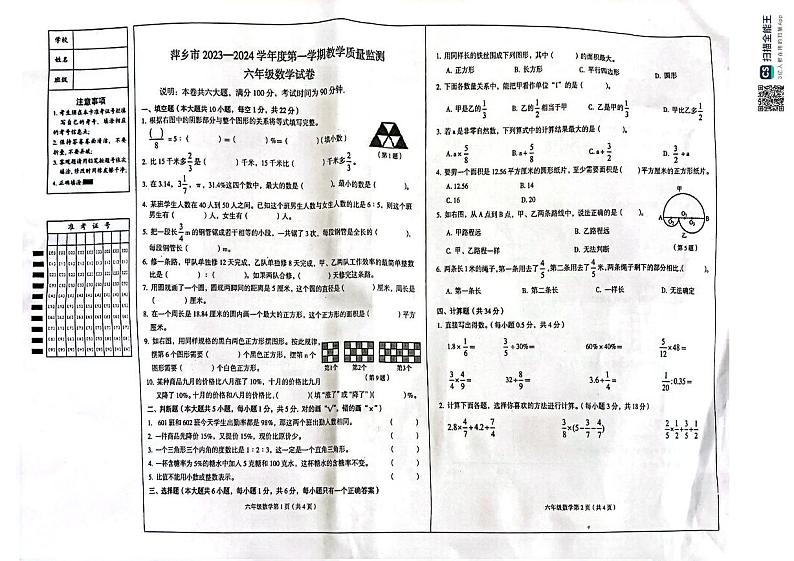 学校
姓名
班级
注意事项
1. 考生请在本卡准考证号处填
写自己的考号、填涂相应
的考号信息点;
2. 保持答卷卷面清洁，不要
折叠，不要弄破;
4. 正确填涂
准考证号
萍乡市 2023—2024 学年度第一学期教学质量监测
六年级数学试卷
说明：本卷共六大题，满分 100 分，考试时间为 90 分钟.
一、填空题（本大题共 10 小题，每空 1 分，共 22 分）
1. 根据右图中的阴影部分与整个图形的关系将等式填写完整。
( )/8 = 5:( ) = ( )% = ( )(填小数)
（第1题）
2. 比 15 千米多 2/3 是（ ）千米，15 千米比（ ）千米多 2/3。
3. 在 3.14，3 1/7，π，31.4% 这四个数中，最大的数是（ ），最小的数是（ ）。
4. 某班学生人数在 40 人到 50 人之间。已知这个班男生人数与女生人数的比是 6:5，则这个班
男生有（ ）人，女生有（ ）人。
每段钢管长（ ）m。
6. 修一条路，甲队单独修 12 天完成，乙队单独修 8 天完成，甲、乙两队工作效率的最简单整数
比是（ ）:（ ），如果两队合修，（ ）天修完这条路。
7. 用圆规画了一个圆，圆规两脚间的距离是 5 厘米，这个圆的直径是（ ）厘米，周长是
（ ）厘米。
8. 在一个周长为 18.84 厘米的圆内画一个最大的正方形，这个正方形的面积是（ ）平方
厘米。
9. 如右图，用同样规格的黑白两色正方形摆图形。按此规律，
摆第 6 个图形需要（ ）个黑色正方形，摆第 n 个
图形需要（ ）个白色正方形。
第1个 第2个 第3个
（第9题）
10. 某种商品九月的价格比八月涨了 10%，十月的价格比九月
又降了 10%，十月的价格和八月的价格比，（ ）(填“涨了”或“降了”)（ ）%。
二、判断题（本大题共 5 小题，每小题 1 分，共 5 分，对的画“√”，错的画“×”）
1. 601 班和 602 班今天学生出勤率都是 98%，那这两个班出勤人数相同。（ ）
2. 一件商品先降价 15%，又提价 15%，现价比原价少。（ ）
3. 一个三角形三个内角的度数比是 1:2:3，这一定是一个直角三角形。（ ）
4. 一杯含糖率为 5% 的糖水中加入 5 克糖和 100 克水，这杯糖水的含糖率不变。（ ）
5. 比值不能用小数或整数表示。（ ）
三、选择题（本大题共 6 小题，每小题 1 分，共 6 分，每小题只有一个正确答案）
六年级数学第 1 页（共 4 页）
1. 用同样长的铁丝围成下列图形，其中（ ）的面积最大。
A. 正方形 B. 长方形 C. 平行四边形 D. 圆形
2. 下面各数量关系中，能把甲看作单位“1”的是（ ）。
A. 甲是乙的 1/3 B. 乙的 1/2 相当于甲 C. 乙是甲的 1/3 D. 甲比乙多 1/2
3. 若 a 是非零自然数，下列算式中的计算结果最大的是（ ）。
A. a×5/8 B. a÷5/8 C. a÷3/2 D. 3/2÷a
4. 要剪一个面积是 12.56 平方厘米的圆形纸片，至少需要面积是（ ）平方厘米的正方形纸片。
A. 12.56 B. 14
C. 16 D. 20
5. 如右图，从 A 点到 B 点，甲、乙两条路线中，说法正确的是（ ）。
A. 甲路程远 B. 乙路程远
C. 甲、乙路程一样 D. 无法判断
甲
A O₁ O O₂ B
乙
（第5题）
6. 两条长 1 米的绳子，第一条用去了 4/5，第二条用去了 4/5 米，两条绳子剩下的部分相比，（ ）。
A. 第一条长 B. 第二条长 C. 一样长 D. 无法确定
四、计算题（共 34 分）
1. 直接写出得数。（每小题 0.5 分，共 4 分）
1.8×1/6= 3/5÷30%= 60%×40%= 5/12×48=
3/4×4/9= 32÷8/9= 3.6÷1/4= 1/20:0.35=
2. 计算下面各题，选择你喜欢的方法进行计算。（每小题 3 分，共 18 分）
2.8×4/7+4.2÷7/4 3/8×(5-3/7-4/7) 2/5×1/2+3/5÷1/2
六年级数学第 2 页（共 4 页）
CS 扫描全能王
3亿人都在用的扫描App